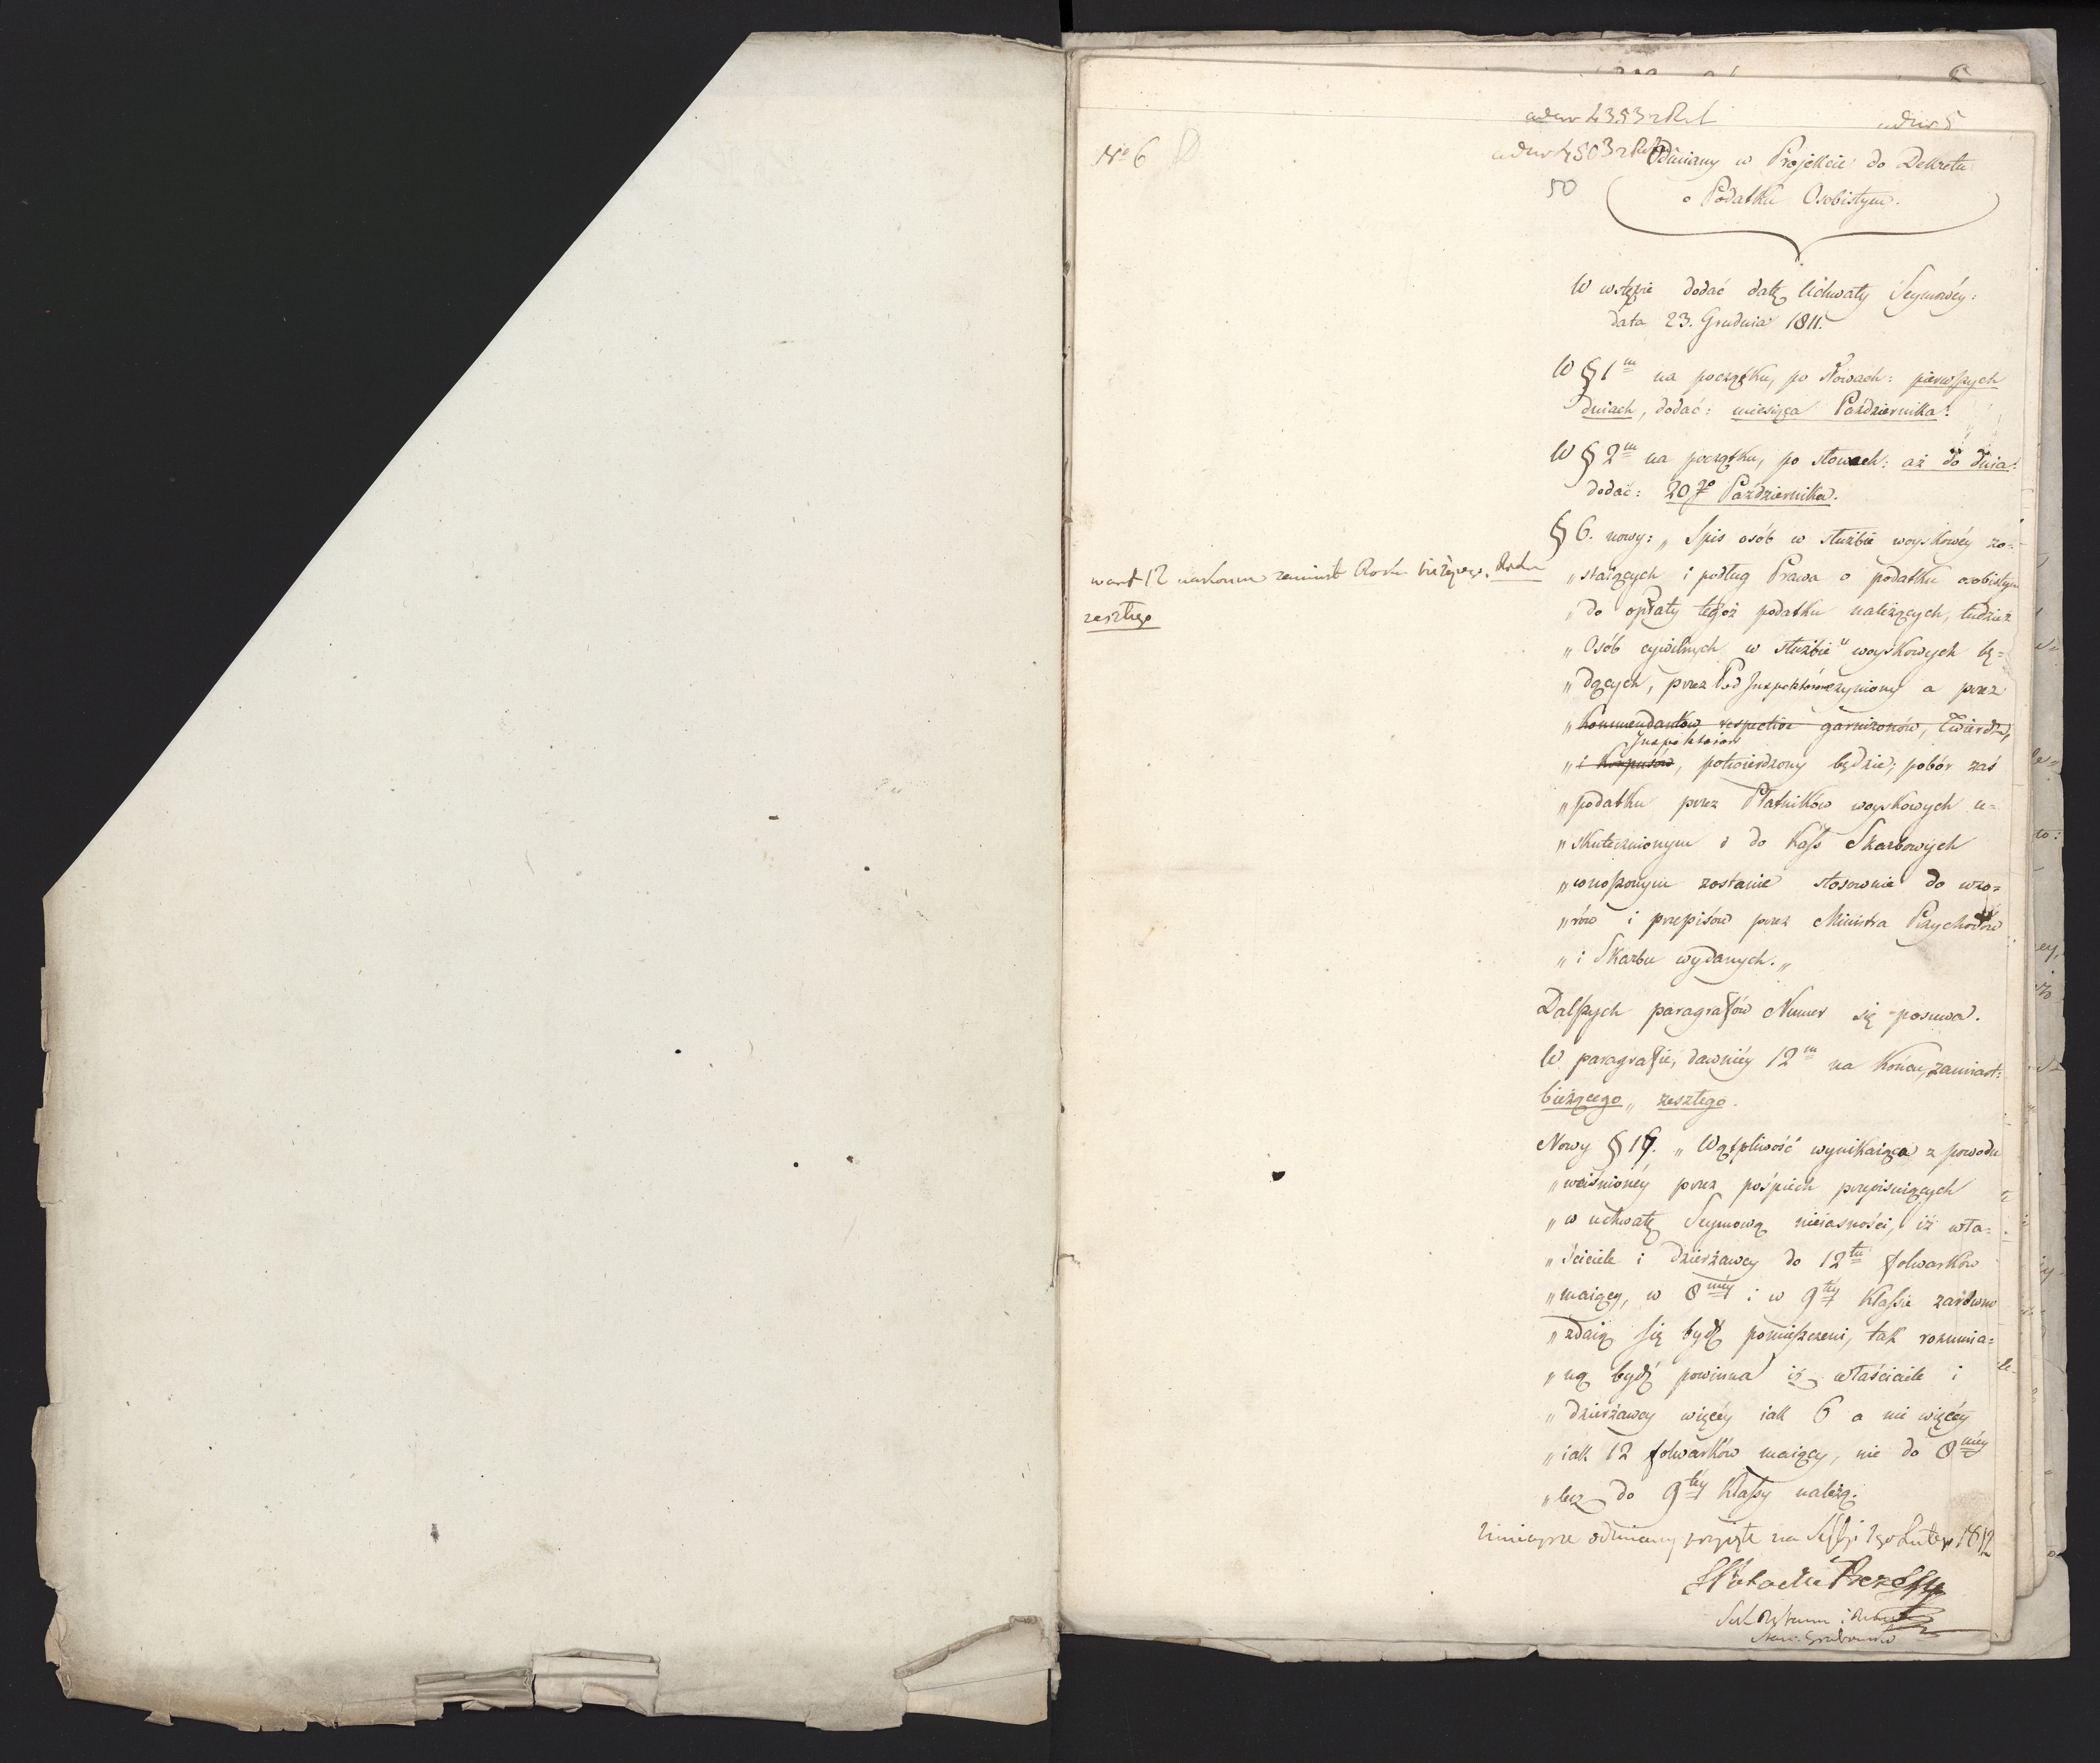 ad nr 4393
ad nr 5
No 6
ad nr 4503
Odmiany w Projekcie do Dekretu
50
o Podatku Osobistym.
W wstępie dodać datę Uchwały Seymowéy:
data 23. Grudnia 1811.
W § 1m na początku, po słowach: pierwszych
dniach, dodać: miesiąca Października.
W § 2m na początku, po słowach: aż do dnia:
dodać: 20go Października.
§ 6. nowy: „Spis osób w służbie woyskowéy zo=
„staiących i podług Prawa o podatku osobistym
„do opłaty tegoż podatku należących, tudzież
„Osób cywilnych w służbie woyskowych bę=
„dących, przez Pod Inspektorów czyniony a przez
„Kommendantów respective garnizonów, Twierdz,
Inspektorów
„i Korpusów, potwierdzony będzie; pobór zaś
„podatku przez Płatników woyskowych u=
„skutecznionym i do Kass Skarbowych
„wnoszonym zostanie stosownie do wzo=
„rów i przepisów przez Ministra Przychodów
„i Skarbu wydanych.„
w art 12 na końcu zamiast Roku bieżącego, Roku
zeszłego
Dalszych paragrafów Numer się posuwa.
W paragrafie, dawniéy 12m na końcu, zamiast:
bieżącego„ zeszłego.
Nowy § 17. „Wątpliwość wynikaiąca z powodu
„wciśnionéy przez pośpiech przepisuiących
„w uchwałę Seymową nieiasności, iż wła=
„ściciele i dzierżawcy do 12tu folwarków
„maiący, w 8méy i w 9téy Klassie zarówno
„zdaią się bydź pomieszczeni, tak rozumia=
„ną bydź powinna iż właściciele i
„dzierżawcy więcéy iak 6 a nie więcéy
„iak 12 folwarków maiący, nie do 8méy
„lecz do 9téy Klassy należą.
Niniejsze odmiany przyjęte na Sessyi Lutego 1812
S Potocki Prezes
Stan. Grabowski